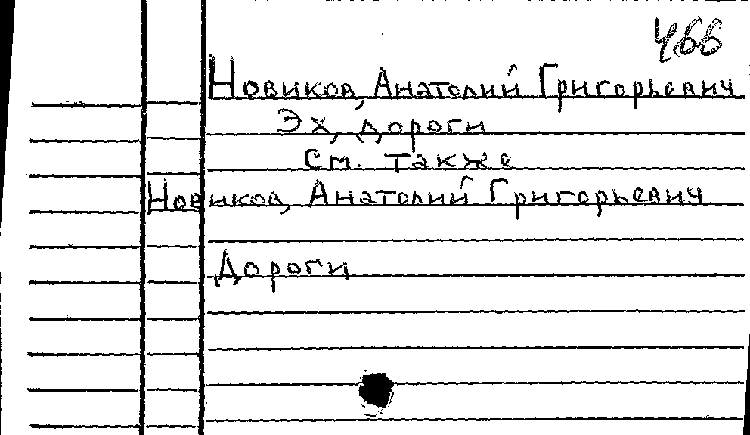 466
Новиков, Анатолий Григорьевич
Эх, дороги
см. также
Новиков, Анатолий Григорьевич
Дороги